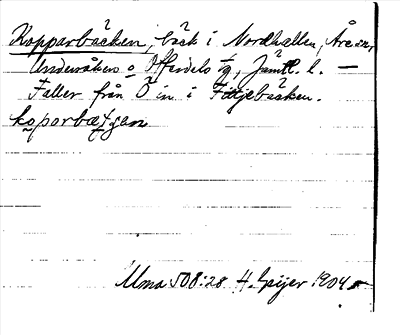 Kopparbäcken, bäck i Nordhallen, Åre sn,
Undersåkers o Offerdals tg, Jämtl. l. —
Faller från Ö in i Fättjebäcken.
koporbæt̯jan
Uma 508:28 H. Geijer 1904